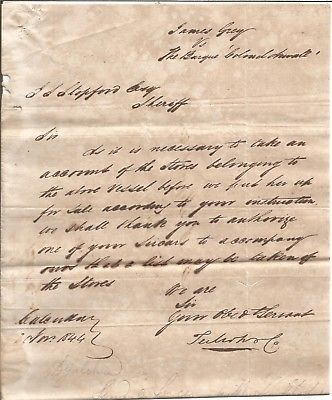 James Grey
vs
The Barque "Colonel
Esq
Sheriff
Sir
As it is necessary to take an
account of the Stores belonging to
the above Vessel before we put her up
for Sale according to your instructions
we shall thank you to authorize
one of your Sircars to accompany
ours that a list may be taken of
the Stores
We are
Sir
Your Obed Servant
& Co
Calcutta
1844